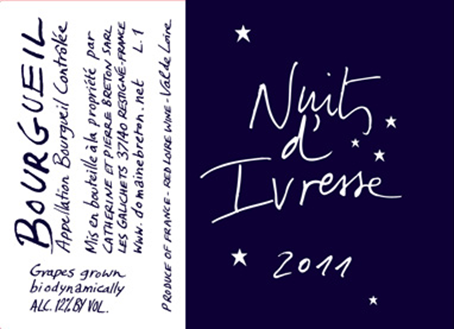 BOURGUEIL
Appellation Bourgueil Contrôlée
Mis en bouteille à la propriété par
CATHERINE ET PIERRE BRETON SARL
LES GALICHETS 37140 RESTIGNÉ-FRANCE
www.domainebreton.net L.1
PRODUCE OF FRANCE - RED LOIRE WINE - Val de Loire
Grapes grown
biodynamically
ALC. 12% BY VOL.
Nuits
d'
Ivresse
2011